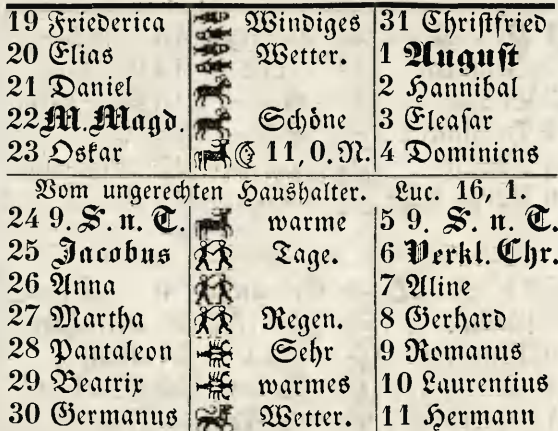 19 Friederica Windiges 31 Christfried
20 Elias Wetter. 1 August
21 Daniel 2 Hannibal
22 M. Magd. Schöne 3 Eleasar
23 Oskar ☾ 11, 0. N. 4 Dominicus
Vom ungerechten Haushalter. Luc. 16, 1.
24 9. S. n. T. warme 5 9. S. n. T.
25 Jacobus Tage. 6 Verkl. Chr.
26 Anna 7 Aline
27 Martha Regen. 8 Gerhard
28 Pantaleon Sehr 9 Romanus
29 Beatrix warmes 10 Laurentius
30 Germanus Wetter. 11 Hermann